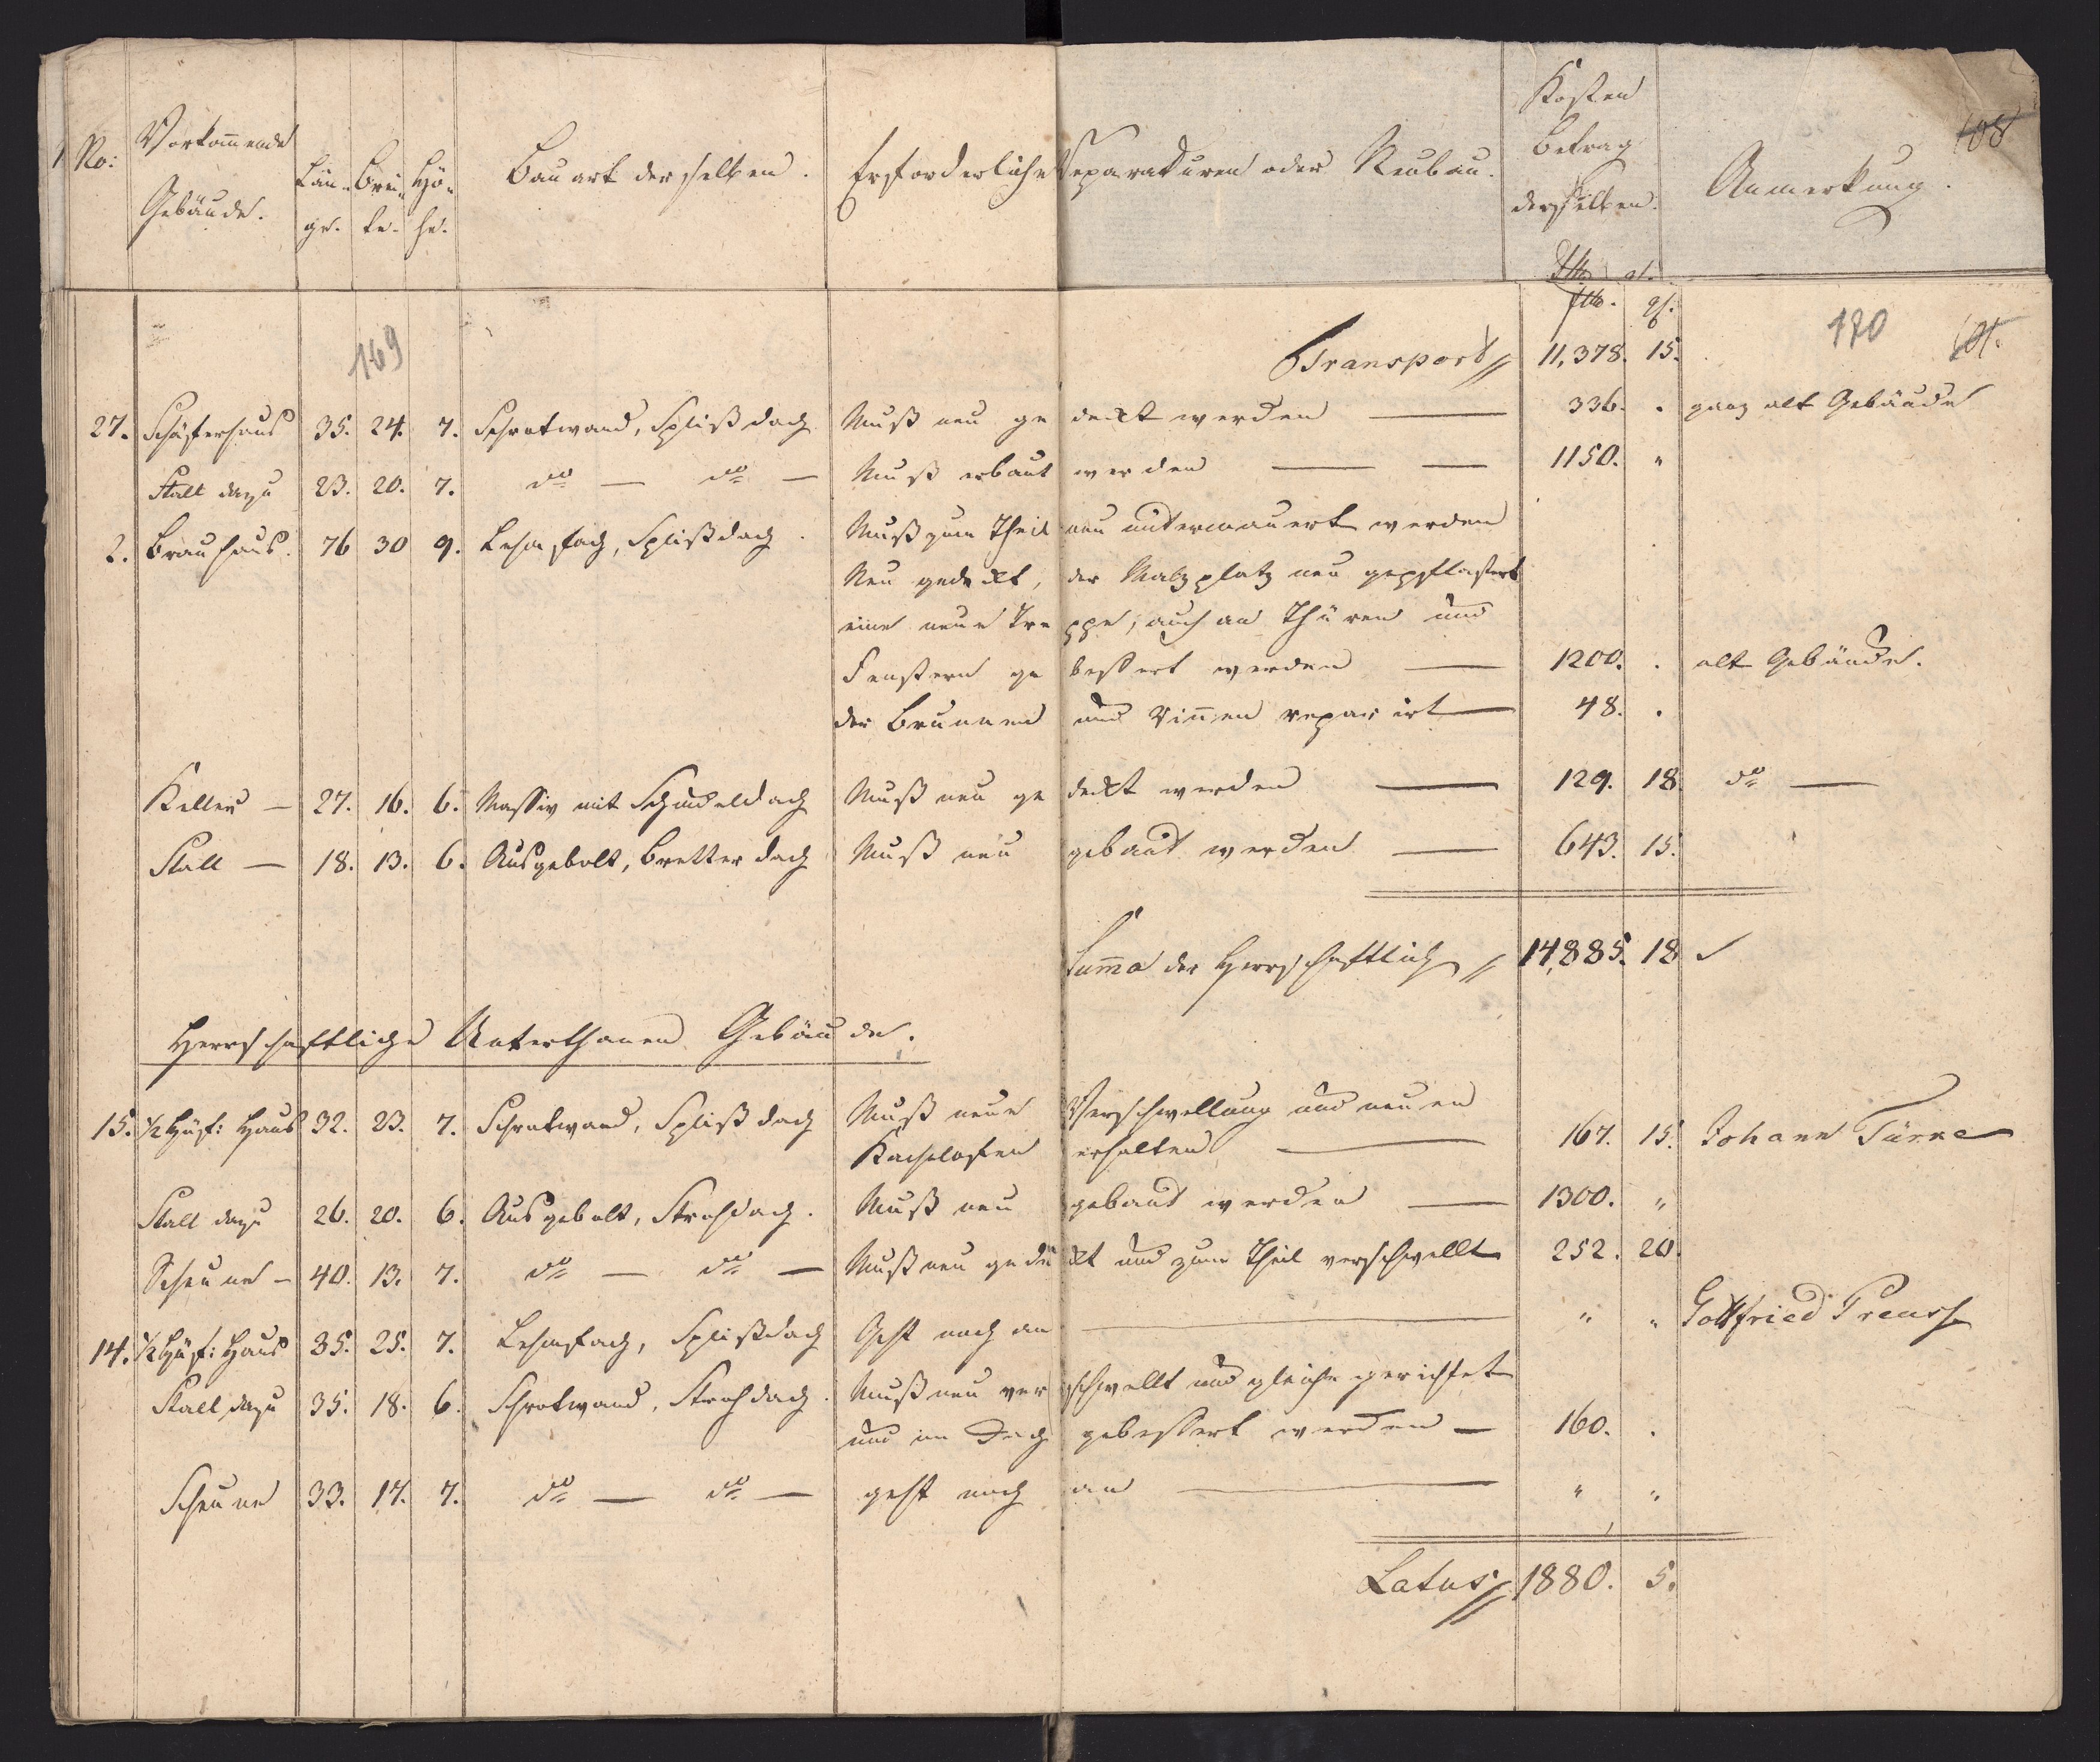 No: Vorkom̄ende Gebäude. Län- ge. Brei- te. Hö- he. Bauart derselben. Erforderliche Reparaturen oder Neubau. Kosten Betrag derselben. Anmerkung. 108
rtl. gl.
rtl. gl.
169 170 101.
Transport 11,378. 15.
27. Schäferhaus 35. 24. 7. Schrotwand, Splißdach Muß neu gedeckt werden — 336. . ganz alt Gebäude
Stall dazu 23. 20. 7. do — do — Muß erbaut werden — — 1150. "
2. Brauhaus. 76 30 9. Lehmfach, Splißdach. Muß zum Theil neu untermauert werden
Neu gedeckt, der Malzplatz neu gepflastert
eine neue Treppe, auch an Thüren und
Fenstern gebessert werden — 1200. . alt Gebäude.
der Brunnen und Rin̄en reparirt — 48. .
Keller — 27. 16. 6. Massiv mit Schindeldach Muß neu gedeckt werden — 129. 18. do —
Stall — 18. 13. 6. Ausgebolt, Bretterdach Muß neu gebaut werden — 643. 15.
Sum̄a der Herrschaftlich 14,885. 18
Herrschaftliche Unterthanen Gebäude.
15. ½ Hüf: Haus 32. 23. 7. Schrotwand, Splißdach Muß neue Verschwellung und neuen
Kachelofen erhalten — 167. 15. Johann Türke
Stall dazu 26. 20. 6. Ausgebolt, Strohdach. Muß neu gebaut werden — 1300. "
Scheune — 40. 13. 7. do — do — Muß neu gedeckt und zum Theil verschwellt 252. 20.
14. ½ Hüf: Haus 35. 25. 7. Lehmfach, Splißdach Geht noch an — " " Gottfried Preuss
Stall dazu 35. 18. 6. Schrotwand, Strohdach. Muß neu verschwellt und gleiche gerichtet
und im Dach gebessert werden — 160. .
Scheune 33. 17. 7. do — do — geht noch an — " "
Latus 1880. 5.